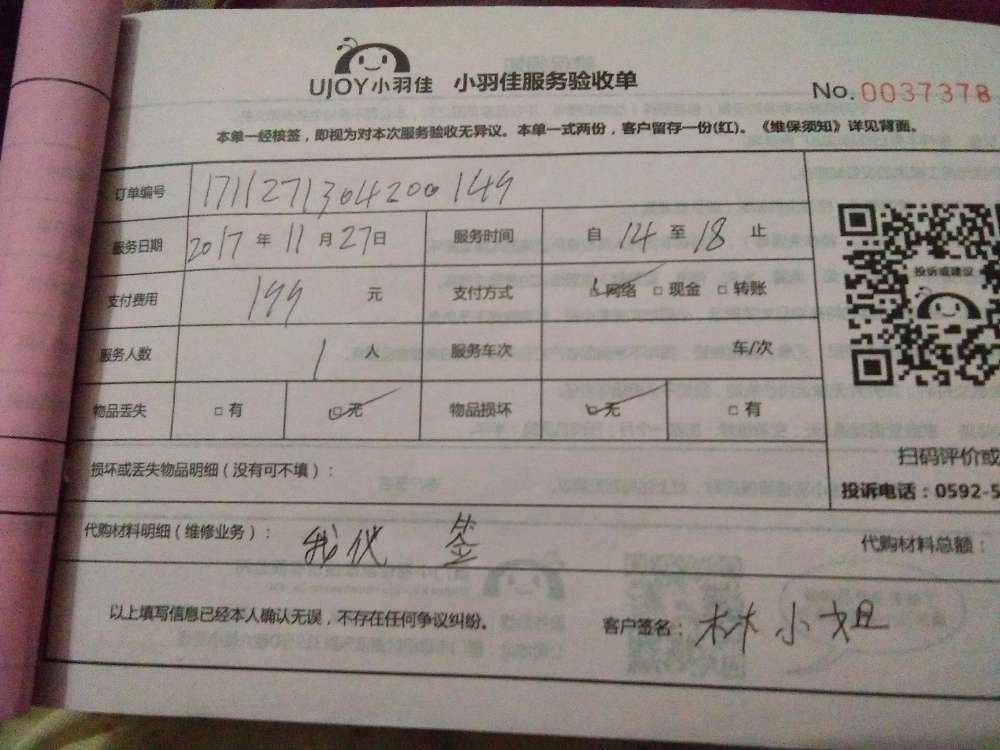 UJOY小羽佳 小羽佳服务验收单
No. 0037378
本单一经核签，即视为对本次服务验收无异议。本单一式两份，客户留存一份(红)。《维保须知》详见背面。
订单编号 1711271304200149
服务日期 2017 年 11 月 27 日 服务时间 自 14 至 18 止
支付费用 199 元 支付方式 □网络 □现金 □转账
投诉或建议
服务人数 1 人 服务车次 车/次
物品丢失 □有 □无 物品损坏 □无 □有
扫码评价或
损坏或丢失物品明细（没有可不填）：
投诉电话：0592-5
代购材料明细（维修业务）： 我代 签
代购材料总额：
以上填写信息已经本人确认无误，不存在任何争议纠纷。 客户签名： 林小姐